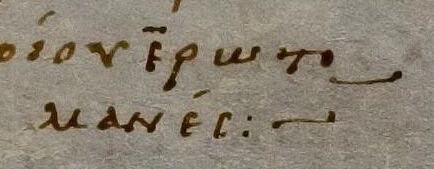 οἱον ἐρωτο
μανές:—